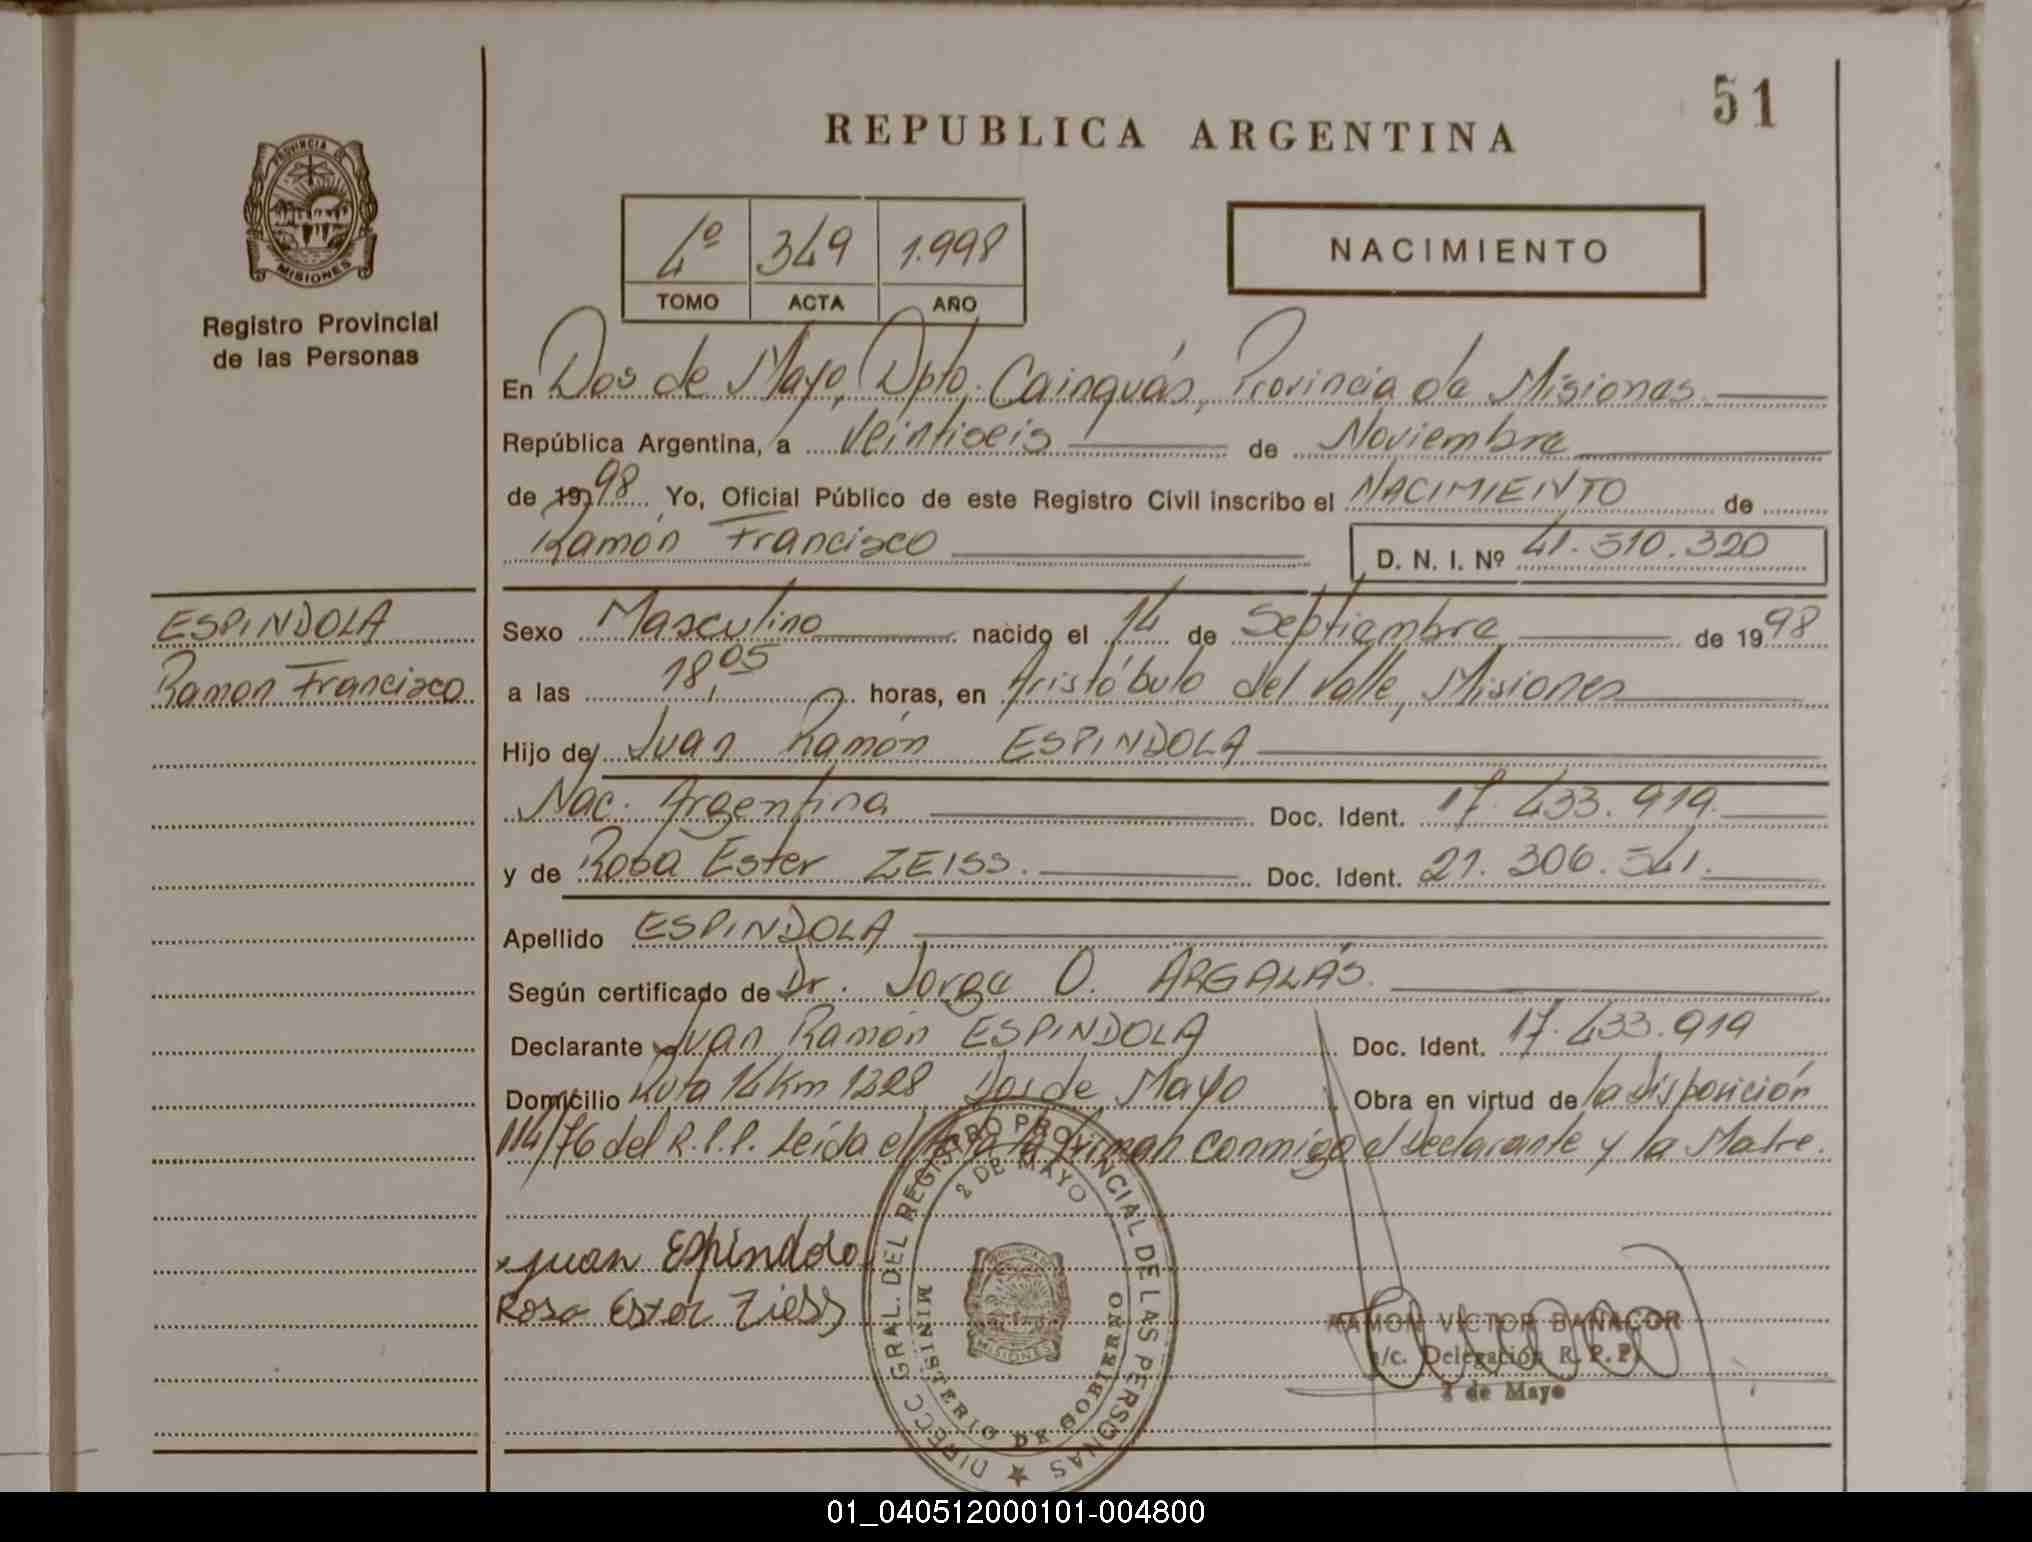 51
REPUBLICA ARGENTINA
PROVINCIA DE
MISIONES
Registro Provincial
de las Personas
4º 349 1.998
TOMO ACTA AÑO
NACIMIENTO
En Dos de Mayo, Dpto. Cainguás, Provincia de Misiones
República Argentina, a Veintiseis de Noviembre
de 1998 Yo, Oficial Público de este Registro Civil inscribo el NACIMIENTO de
Ramón Francisco D. N. I. Nº 41.510.320
ESPINDOLA
Ramon Francisco
Sexo Masculino nacido el 14 de Septiembre de 1998
a las 18,05 horas, en Aristóbulo del Valle, Misiones
Hijo de Juan Ramón ESPINDOLA
Nac. Argentina Doc. Ident. 17.433.919.
y de Rosa Ester ZEISS. Doc. Ident. 21.306.541.
Apellido ESPINDOLA
Según certificado de Dr. Jorge O. ARGALÁS.
Declarante Juan Ramón ESPINDOLA Doc. Ident. 17.433.919
Domicilio Ruta 14 Km 1228 Dos de Mayo Obra en virtud de la disposición
114/76 del R.P.P. Leida el Acta la firman conmigo el declarante y la Madre.
Juan Espindola
Rosa Ester Ziess
DIRECC GRAL. DEL REGISTRO PROVINCIAL DE LAS PERSONAS
2 DE MAYO
MINISTERIO DE GOBIERNO
PROVINCIA DE
MISIONES
RAMON VICTOR
a/c. Delegación R. P. P.
2 de Mayo
01_040512000101-004800